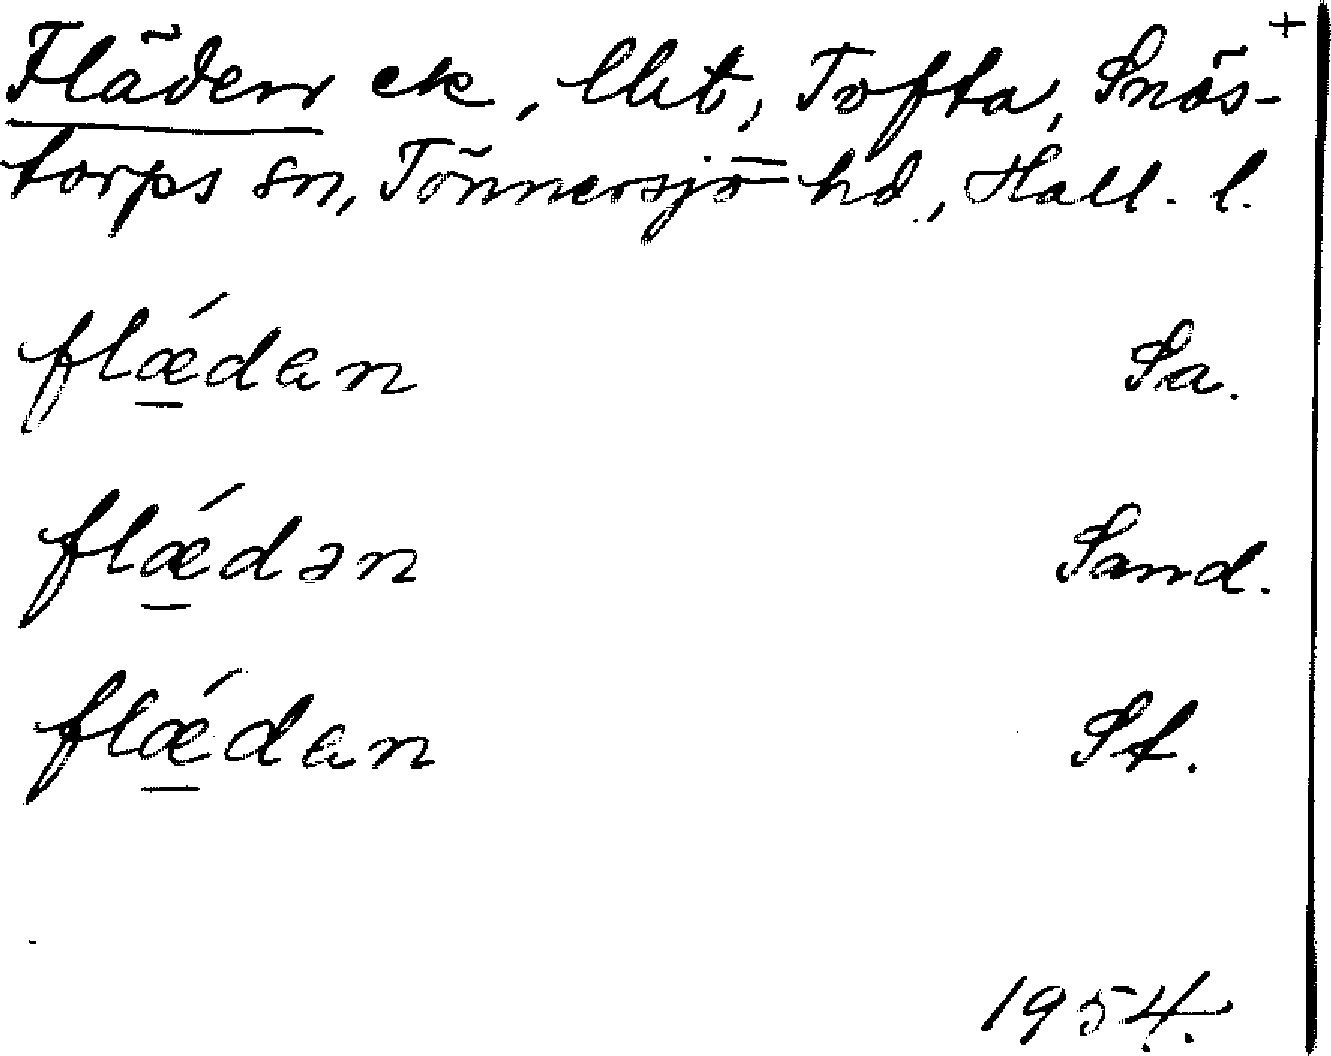 +
Fläden ek, lht, Tofta, Snös-
torps sn, Tönnersjö hd, Hall. l.
flǽdan Sa.
flǽdən Sand.
flǽdan St.
1954.